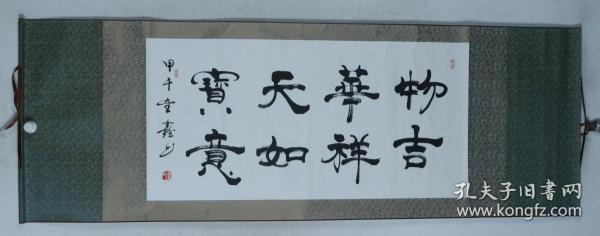 物華天寶
吉祥如意
甲午
孔夫子旧书网
www.kongfz.com